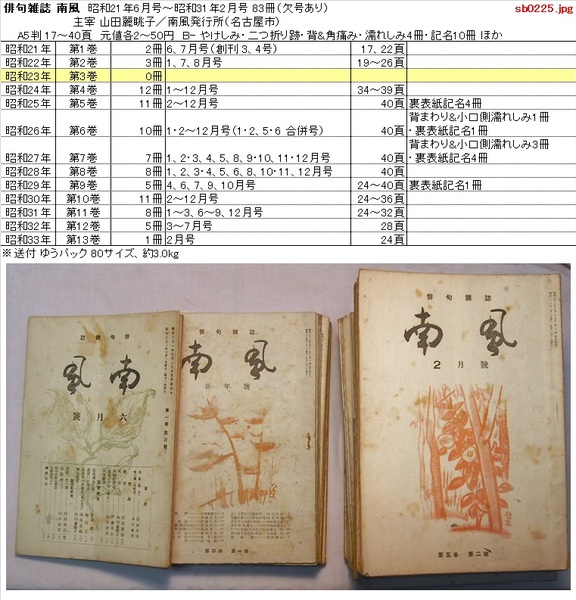 俳句雑誌 南風 昭和21年6月号～昭和31年2月号 83冊(欠号あり) sb0225.jpg
主宰 山田麗眺子／南風発行所(名古屋市)
A5判 17～40頁 元値各2～50円 B- やけしみ・二つ折り跡・背&角痛み・濡れしみ4冊・記名10冊 ほか
昭和21年 第1巻 2冊 6、7月号(創刊3、4号) 17、22頁
昭和22年 第2巻 3冊 1、7、8月号 19～26頁
昭和23年 第3巻 0冊
昭和24年 第4巻 12冊 1～12月号 34～39頁
昭和25年 第5巻 11冊 2～12月号 40頁 裏表紙記名4冊
昭和26年 第6巻 10冊 1・2～12月号(1・2、5・6 合併号) 40頁 背まわり&小口側濡れしみ1冊・裏表紙記名1冊
昭和27年 第7巻 7冊 1、2・3、4、5、8、9・10、11・12月号 40頁 背まわり&小口側濡れしみ3冊・裏表紙記名4冊
昭和28年 第8巻 8冊 1、2、3・4、5、6、8、10・11、12月号 40頁
昭和29年 第9巻 5冊 4、6、7、9、10月号 24～40頁 裏表紙記名1冊
昭和30年 第10巻 11冊 2～12月号 24～36頁
昭和31年 第11巻 8冊 1～3、6～9、12月号 24～32頁
昭和32年 第12巻 5冊 3～7月号 28頁
昭和33年 第13巻 1冊 2月号 24頁
※送付 ゆうパック 80サイズ、約3.0kg
誌雑句俳
風南
號月六
俳句雑誌
南風
新年號
第四巻 第一號
俳句雑誌
南風
2月號
第五巻 第二號